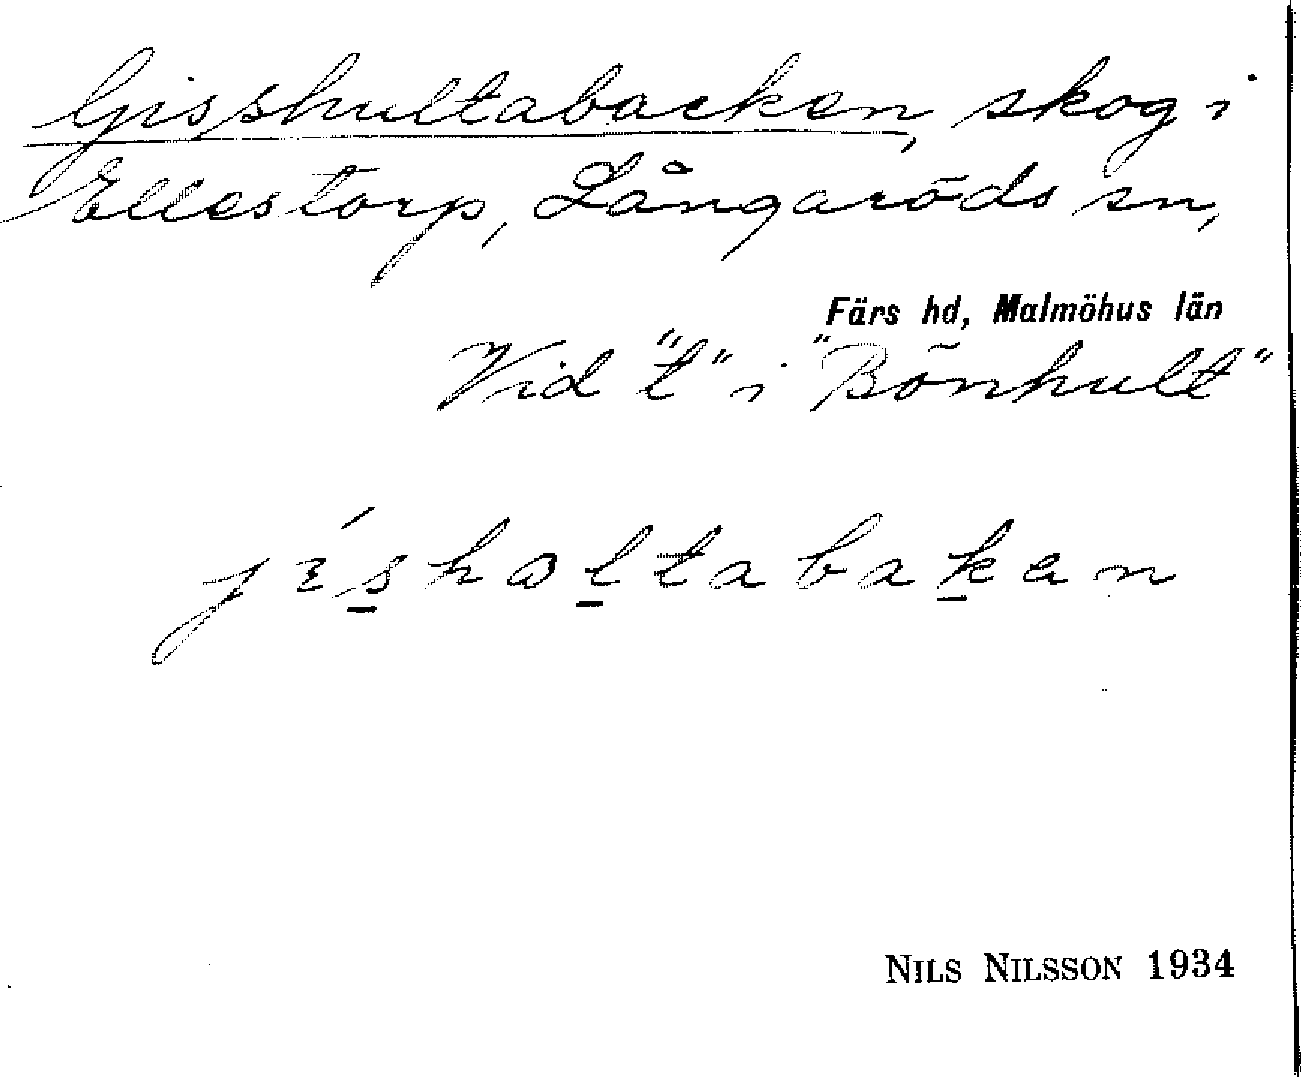 Gisshultabacken, skog i
Ellestorp, Långaröds sn,
Färs hd, Malmöhus län
Vid "t" i "Bönhult"
jíshɷltabakan
NILS NILSSON 1934